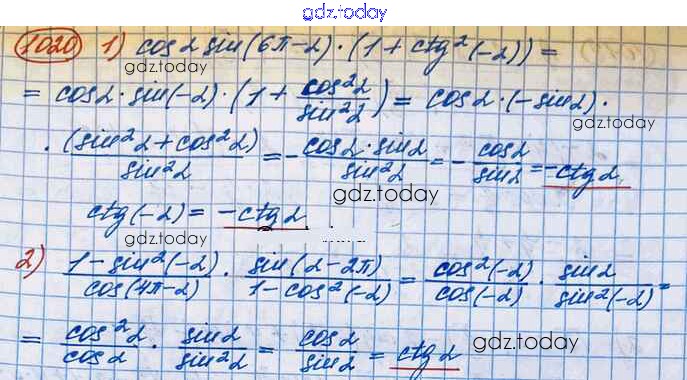 gdz.today
1020 1) cos α sin(6π-α)·(1+ctg²(-α)) =
gdz.today
= cos α · sin(-α) · (1 + cos²α/sin²α) = cos α · (-sin α) ·
gdz.today
· (sin²α + cos²α)/sin²α = - cos α · sin α/sin²α = - cos α/sin α = -ctg α
gdz.today
ctg(-α) = -ctg α
gdz.today
2) 1-sin²(-α)/cos(4π-α) · sin(α-2π)/1-cos²(-α) = cos²(-α)/cos(-α) · sin α/sin²(-α) =
= cos²α/cos α · sin α/sin²α = cos α/sin α = ctg α
gdz.today